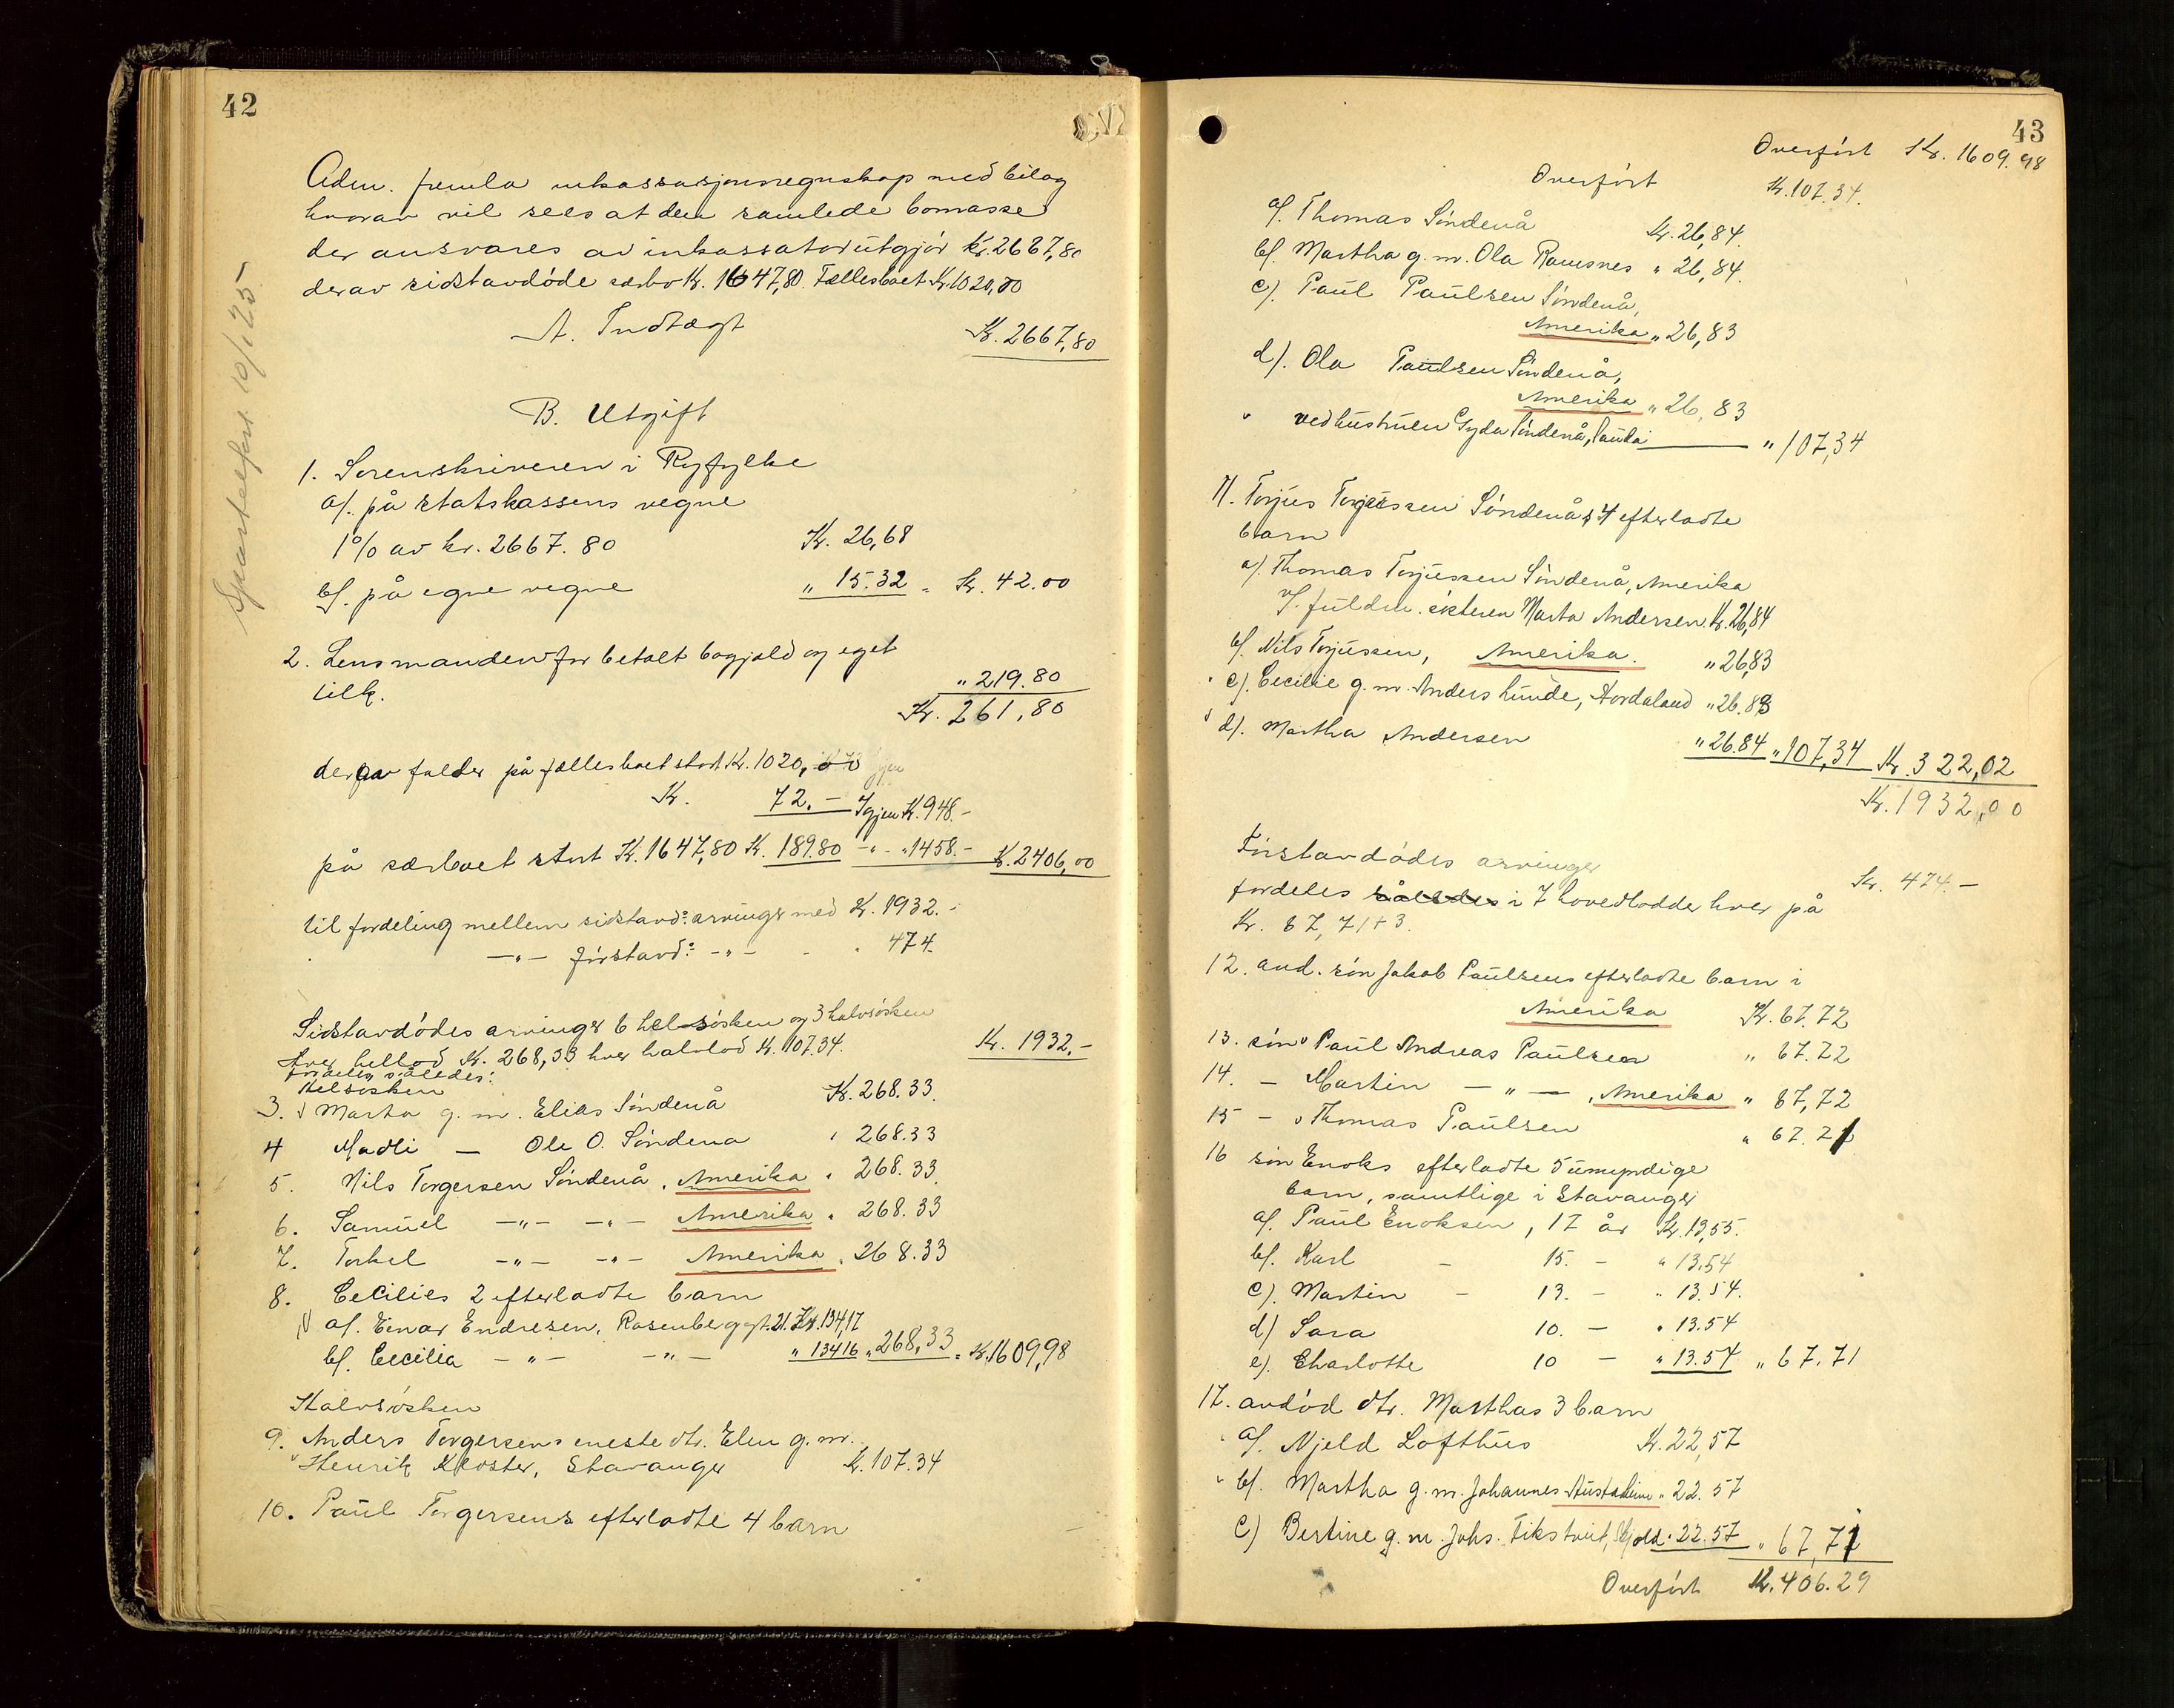 42
Adm. fremla inkassasjonsregnskap med bilag
hvorav vil sees at den samlede bomasse
der ansvares av inkassator utgjör Kr. 2667,80
derav sidstavdöde særbo Kr. 1647,80. Fællesboet Kr. 1020,00
A. Indtægt Kr. 2667,80
B. Utgift
1. Sorenskriveren i Ryfylke
a/. på statskassens vegne
1% av kr. 2667.80 Kr. 26,68
b/. på egne vegne " 15.32 = Kr. 42.00
2. Lensmanden for betalt bogjæld og eget
tilk. " 219.80
Kr. 261,80
derav falder på fællesboet stort Kr. 1020,00
Kr. 72.— Igjen Kr. 948.-
på særboet stort Kr. 1647,80 Kr. 189.80 -"- " 1458.- Kr. 2406,00
til fordeling mellem sidstavd: arvinger med Kr. 1932.-
—"— förstavd: -"- - " 474.
Sidstavdödes arvinger 6 helsösken og 3 halvsösken
hver hellod Kr. 268,33 hver halvlod Kr. 107.34. Kr. 1932.-
fordeles således:
Helsösken
3. Marta g. m. Elias Söndenå Kr. 268.33.
4 Madli — Ole O. Söndena " 268.33
5. Nils Torgersen Söndenå, Amerika " 268.33.
6. Samuel —"— —"— Amerika " 268.33
7. Torkel —"— —"— Amerika " 268.33
8. Cecilies 2 efterladte barn
a/. Einar Endresen, Rosenberggt. 21. Kr. 134,17
b/. Cecilia —"— —"— " 134 16 " 268,33 = Kr. 1609,98
Halvsösken
9. Anders Torgersens eneste dtr. Elen g. m.
Henrik Kloster, Stavanger Kr. 107.34
10. Paul Torgersens efterladte 4 barn
43
Overfört Kr. 1609.98
Overfört Kr. 107.34.
a/. Thomas Söndenå Kr. 26,84.
b/. Martha g. m. Ola Ramsnes " 26,84.
c/. Paul Paulsen Söndenå,
Amerika " 26,83
d/. Ola Paulsen Söndenå,
Amerika " 26,83
ved hustruen Gyda Söndenå, Sauda " 107,34
11. Torjus Torjussen Söndenås 4 efterladte
barn
a/. Thomas Torjussen Söndenå, Amerika
f. fuldm. sösteren Marta Andersen Kr. 26,84
b/. Nils Torjussen, Amerika. " 26,83
c/. Cecilie g. m. Anders Lunde, Hordaland " 26.83
d/. Martha Andersen " 26.84 " 107,34 Kr. 322,02
Kr. 1932,00
Förstavdödes arvinger Kr. 474.—
fordeles således i 7 hovedlodder hver på
Kr. 67,71+3.
12. avd. sön Jakob Paulsens efterladte barn i
Amerika Kr. 67.72
13. sön Paul Andreas Paulsen " 67.72
14. — Martin —"—, Amerika " 67,72
15 — Thomas Paulsen " 67.71
16 sön Enoks efterladte 5 umyndige
barn, samtlige i Stavanger
a/. Paul Enoksen, 17 år Kr. 13,55.
b/. Karl - 15. - " 13.54
c/. Martin - 13. - " 13.54.
d/ Sara 10. — " 13.54
e/. Charlotte 10 — " 13.54 " 67.71
17. avdöd dtr. Marthas 3 barn
a/. Njeld Lofthus Kr. 22,57
b/. Martha g. m. Johannes Austadheim " 22.57
c/ Bertine g. m. Johs. Fikstveit, Skjold " 22.57 " 67,71
Overfört Kr. 406.29